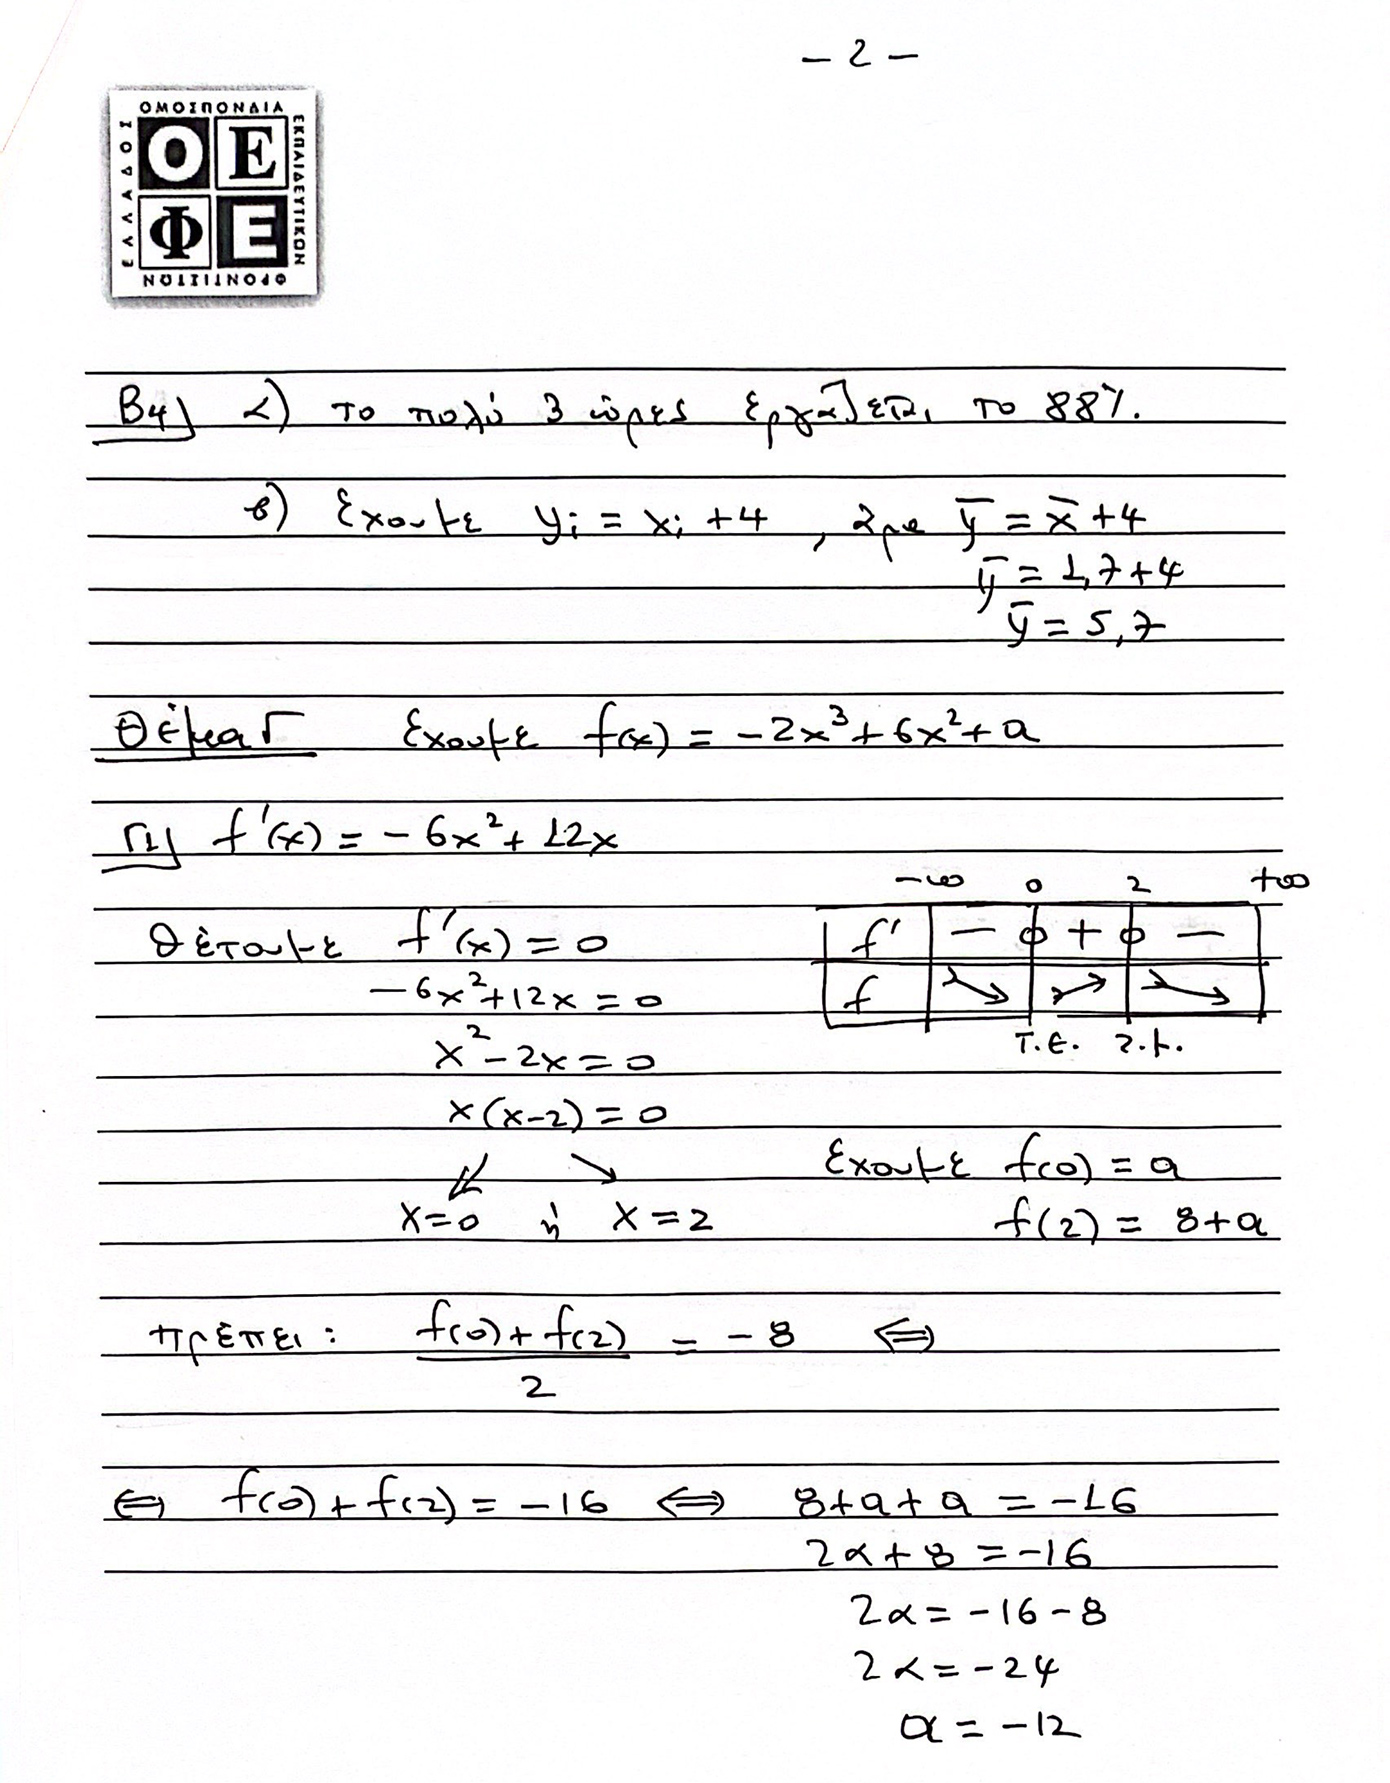 – 2 –
ΟΜΟΣΠΟΝΔΙΑ
ΕΚΠΑΙΔΕΥΤΙΚΩΝ
ΦΡΟΝΤΙΣΤΩΝ
ΕΛΛΑΔΟΣ
Ο Ε
Φ Ε
Β4) α) το πολύ 3 ώρες εργάζεται το 88%.
β) έχουμε yi = xi + 4 , άρα ȳ = x̄ + 4
ȳ = 1,7 + 4
ȳ = 5,7
Θέμα Γ έχουμε f(x) = -2x³ + 6x² + a
Γ1) f'(x) = - 6x² + 12x
-∞ 0 2 +∞
θέτουμε f'(x) = 0
f' − 0 + 0 −
-6x² + 12x = 0
f ↘ ↗ ↘
x² - 2x = 0
τ.ε. τ.μ.
x(x-2) = 0
έχουμε f(0) = a
x=0 ή x=2
f(2) = 8+a
πρέπει: (f(0) + f(2))/2 = -8 ⇔
⇔ f(0) + f(2) = -16 ⇔ 8+a+a = -16
2α + 8 = -16
2α = -16 - 8
2α = -24
α = -12